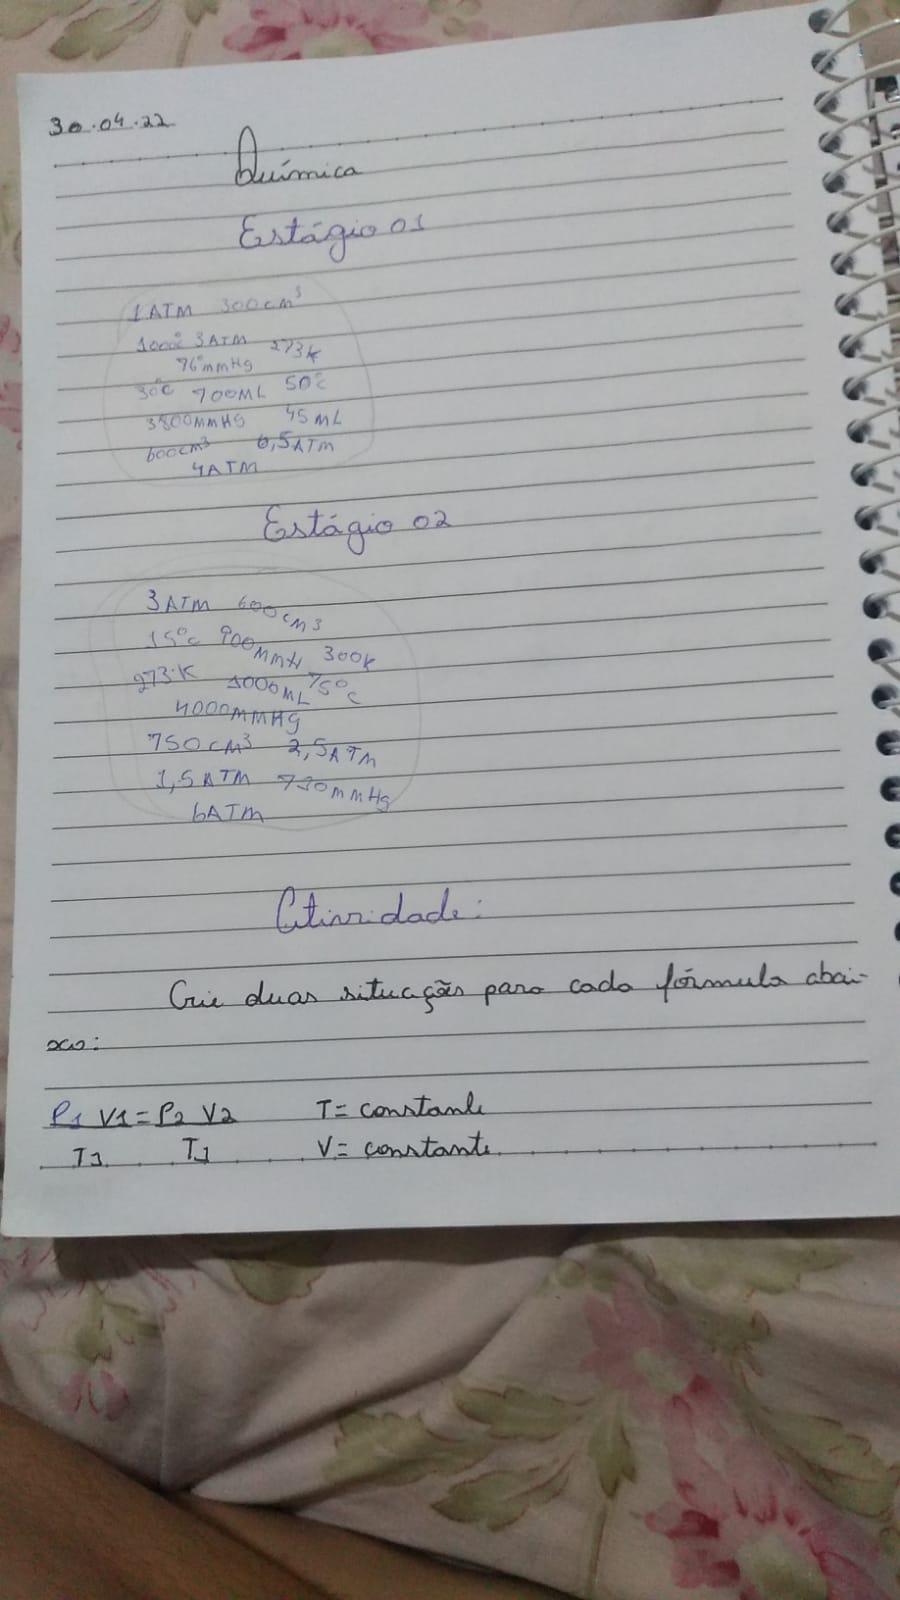 30.04.22
Química
Estágio 01
1ATM 300cm³
100°C 3ATM 273K
76°mmHg
30°C 700ML 50°C
3800MMHG 45ML
600cm³ 6,5ATM
4ATM
Estágio 02
3ATM 600cm3
15°C 900MMH 300K
273K 1000ML 75°C
4000MMHG
750CM³ 2,5ATM
1,5ATM 730mmHg
6ATM
Atividade:
Crie duas situações para cada fórmula abai-
xo:
P1 V1=P2 V2 T= constante
T1 V= constante